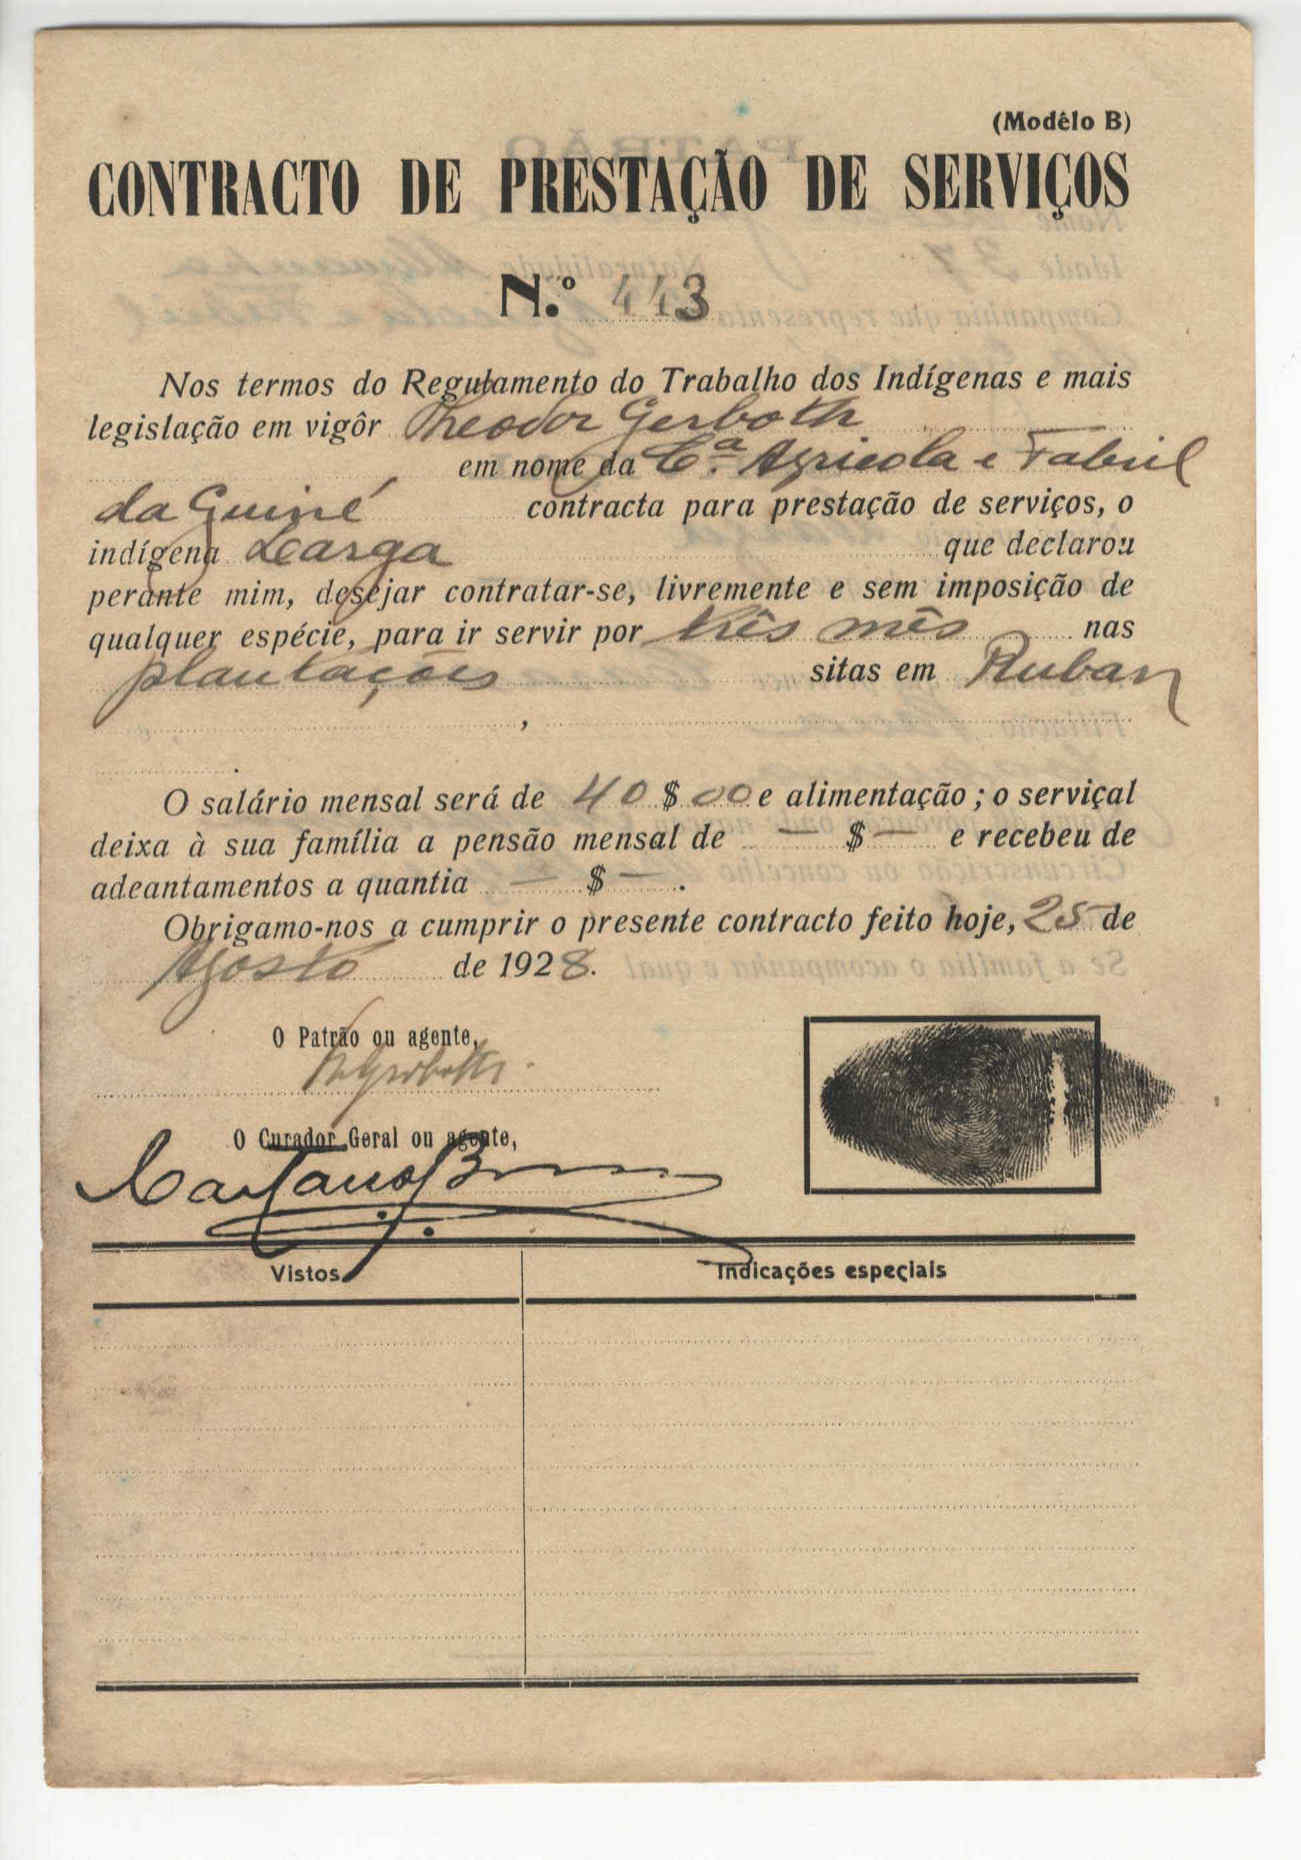 (Modêlo B)
CONTRACTO DE PRESTAÇÃO DE SERVIÇOS
N.º 443
Nos termos do Regulamento do Trabalho dos Indígenas e mais
legislação em vigôr Theodor Gerboth
em nome da C.ª Agricola e Fabril
da Guiné contracta para prestação de serviços, o
indígena Larga que declarou
perante mim, desejar contratar-se, livremente e sem imposição de
qualquer espécie, para ir servir por três mês nas
plantações sitas em Ruban
,
.
O salário mensal será de 40$00 e alimentação; o serviçal
deixa à sua família a pensão mensal de — $ — e recebeu de
adeantamentos a quantia — $ — .
Obrigamo-nos a cumprir o presente contracto feito hoje, 25 de
Agosto de 1928.
O Patrão ou agente,
O Curador Geral ou agente,
Vistos Indicações especiais